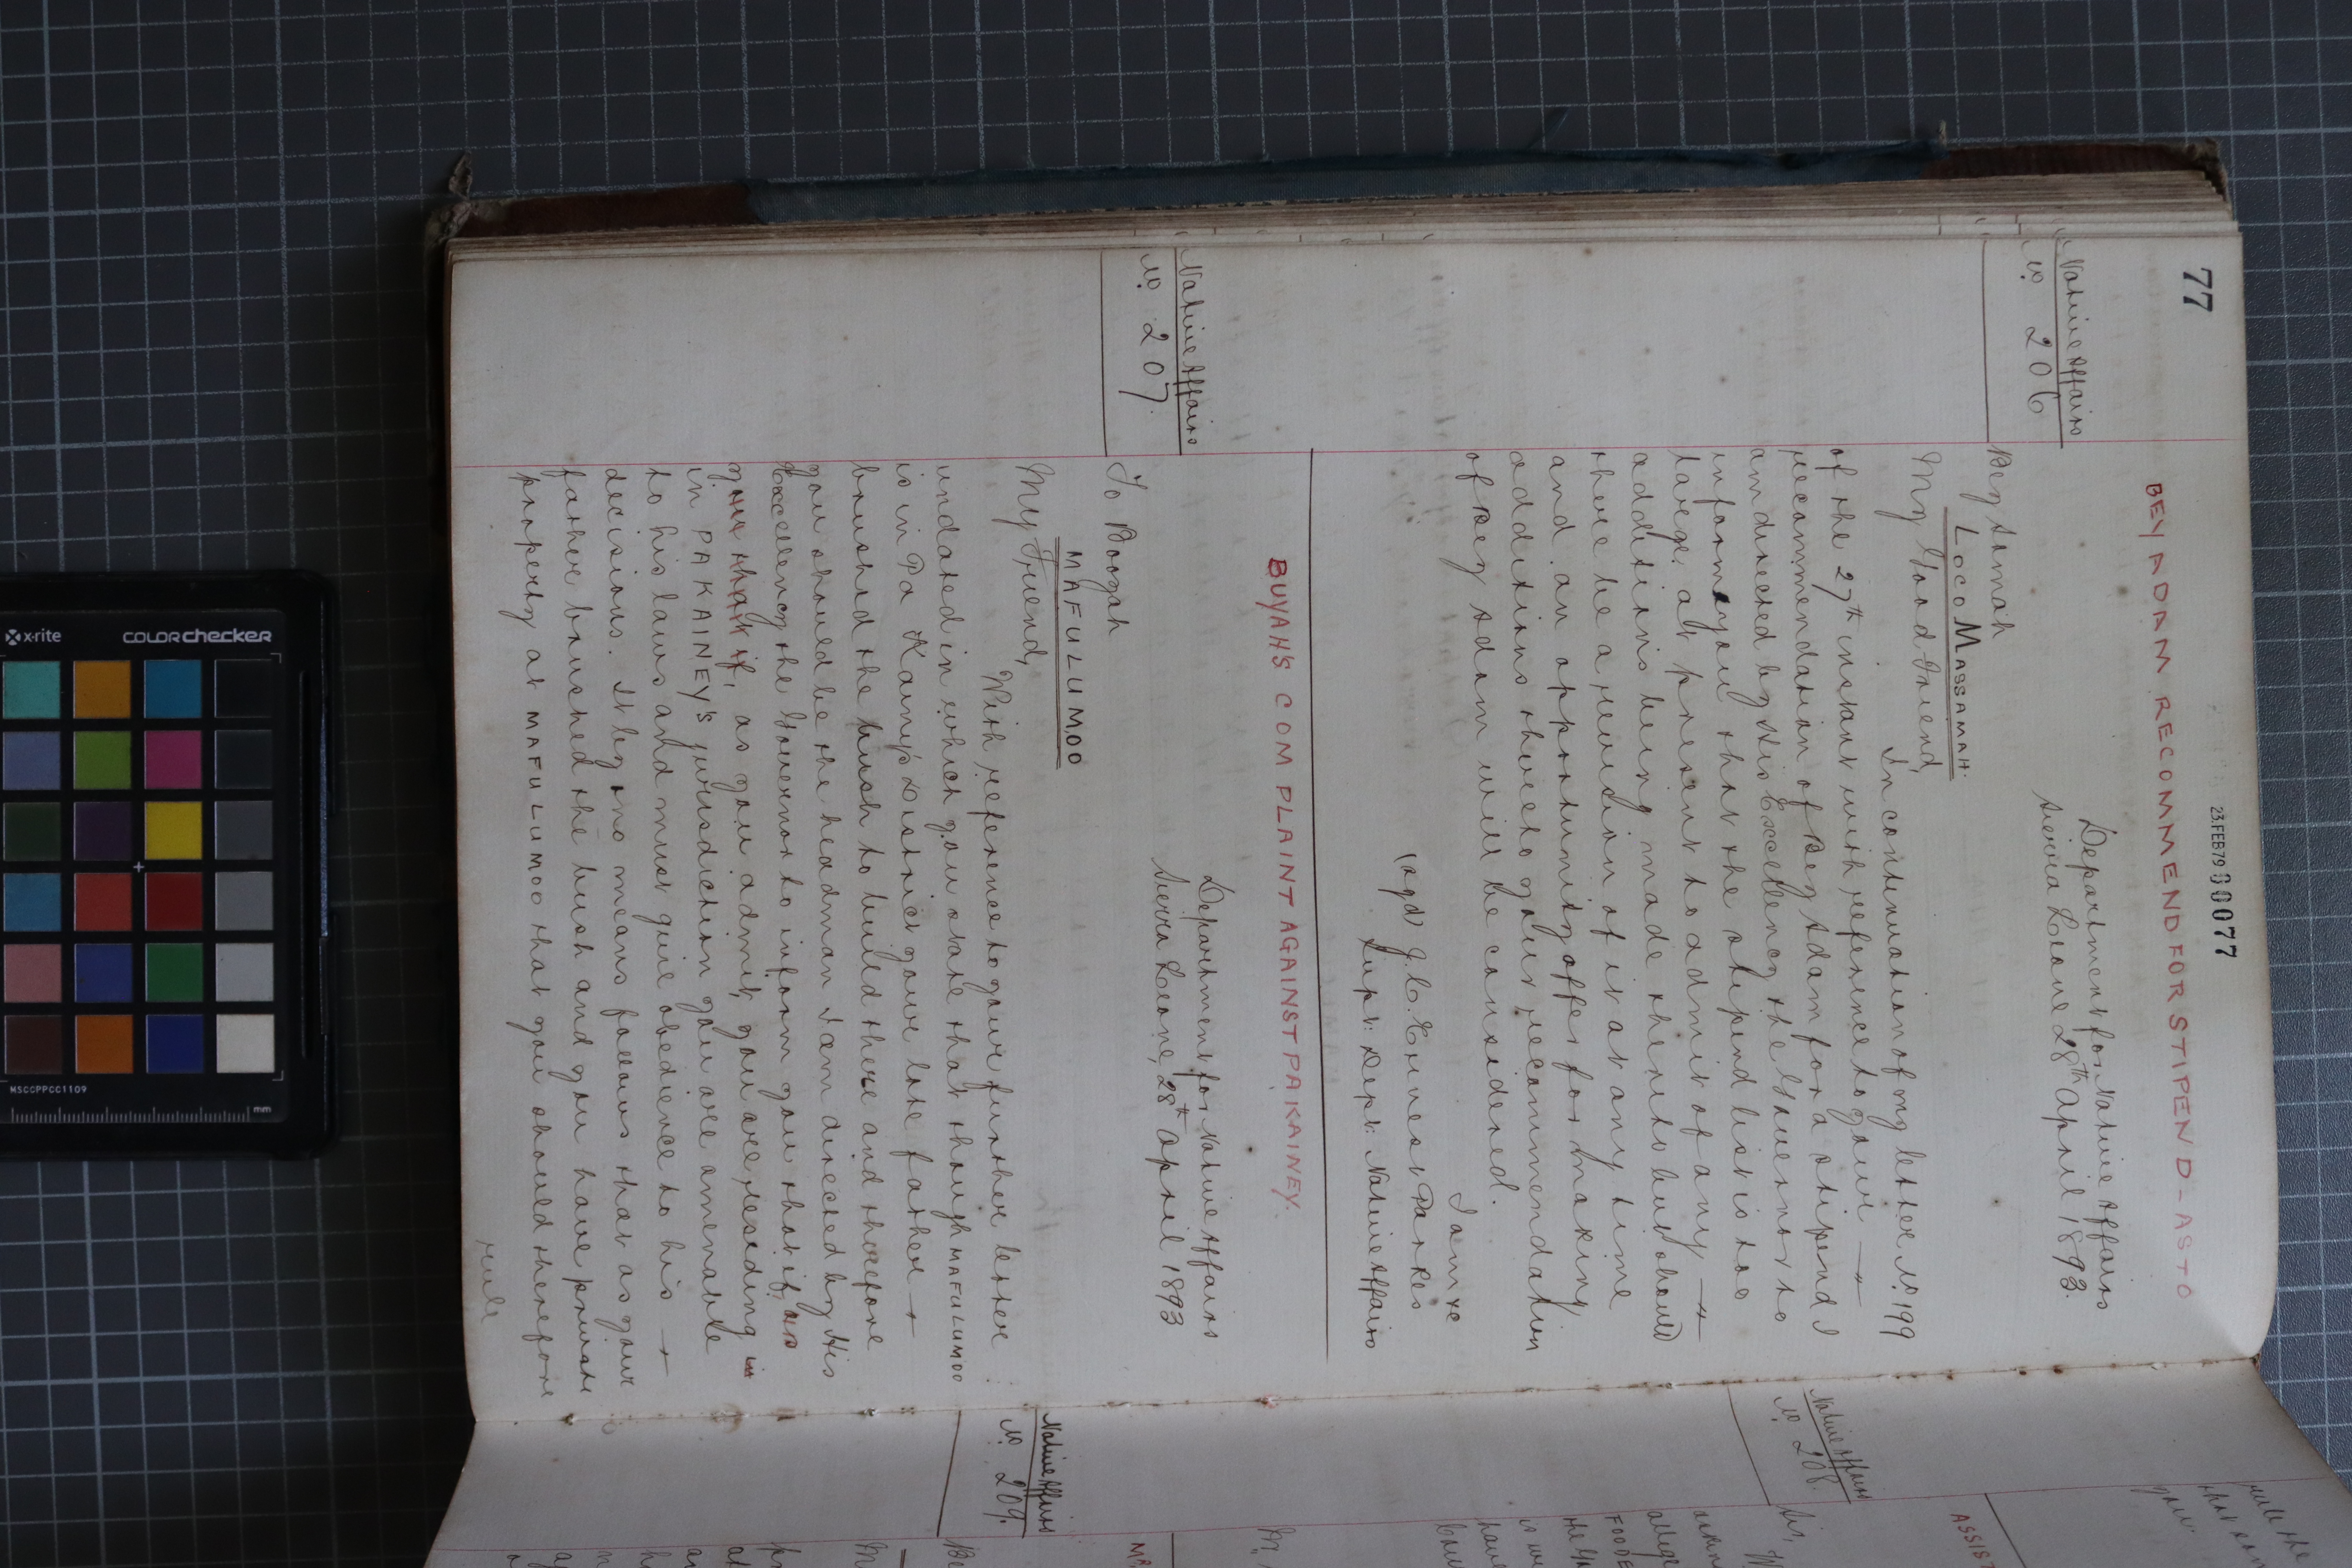 77
23. FEB 79 00077
BEY ADAM RECOMMEND FOR STIPEND - AS TO
Native Affairs
No. 206
Department for Native Affairs
Sierra Leone 28th April 1893.
Bey Samah
LOCO MASSAMAH.
My Good Friend,
In continuation of my letter No. 199
of the 27th instant with reference to your
recommendation of Bey Adam for a stipend I
am directed by His Excellency the Governor to
inform you that the stipend list is too
large at present to admit of any
additions being made thereto but should
there be a revision of it at any time
and an opportunity offer for making
additions thereto your recommendation
of Bey Adam will be considered.
I am &c
(sgd) J. C. Ernest Parkes
Supt: Dept: Native Affairs
BUYAH'S COMPLAINT AGAINST PA KAINEY.
Native Affairs
No. 207.
Department for Native Affairs
Sierra Leone, 28th April 1893
To Booyah
MAFULUMOO
My Friend,
With reference to your further letter
undated in which you state that though MAFULUMOO
is in Pa Kainy's District your late father
brushed the bush to build there and therefore
you should be the headman I am directed by His
Excellency the Governor to inform you that if, as
you that if, as you admit, you are, residing in
in PA KAINEY'S jurisdiction you are amenable
to his laws and must give obedience to his
decisions. It by no means follows that as your
father brushed the bush and you have private
property at MAFULUMOO that you should therefore
rule
rule the
you
Native Affairs
No. 208.
ASSIST
FOODE
Native Affairs
No. 209.